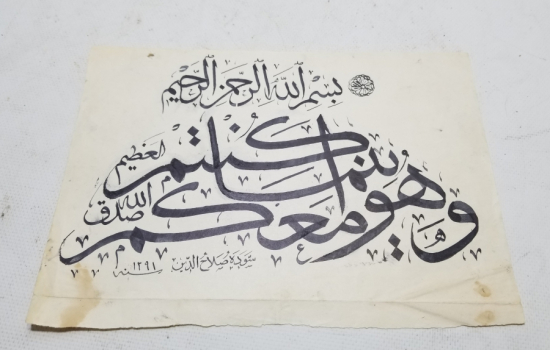 بسم الله الرحمن الرحيم
وهو معكم أينما كنتم
صدق الله العظيم
سوده صلاح الدين سنه ١٣٩١ م